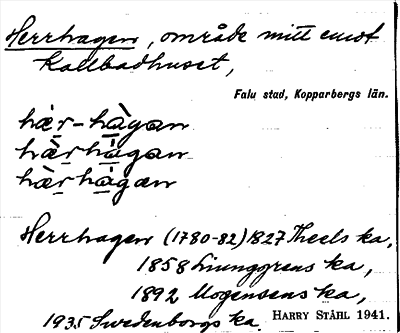 Herrhagen, område mitt emot
Kallbadhuset,
Falu stad, Kopparbergs län.
hæ̀r-hàgan
hæ̀r hàgan
hæ̀r hàgæn
Herrhagen (1780-82) 1827 Theels ka,
1858 Ljunggrens ka,
1892 Mogensens ka,
1935 Swedenborgs ka.
HARRY STÅHL 1941.